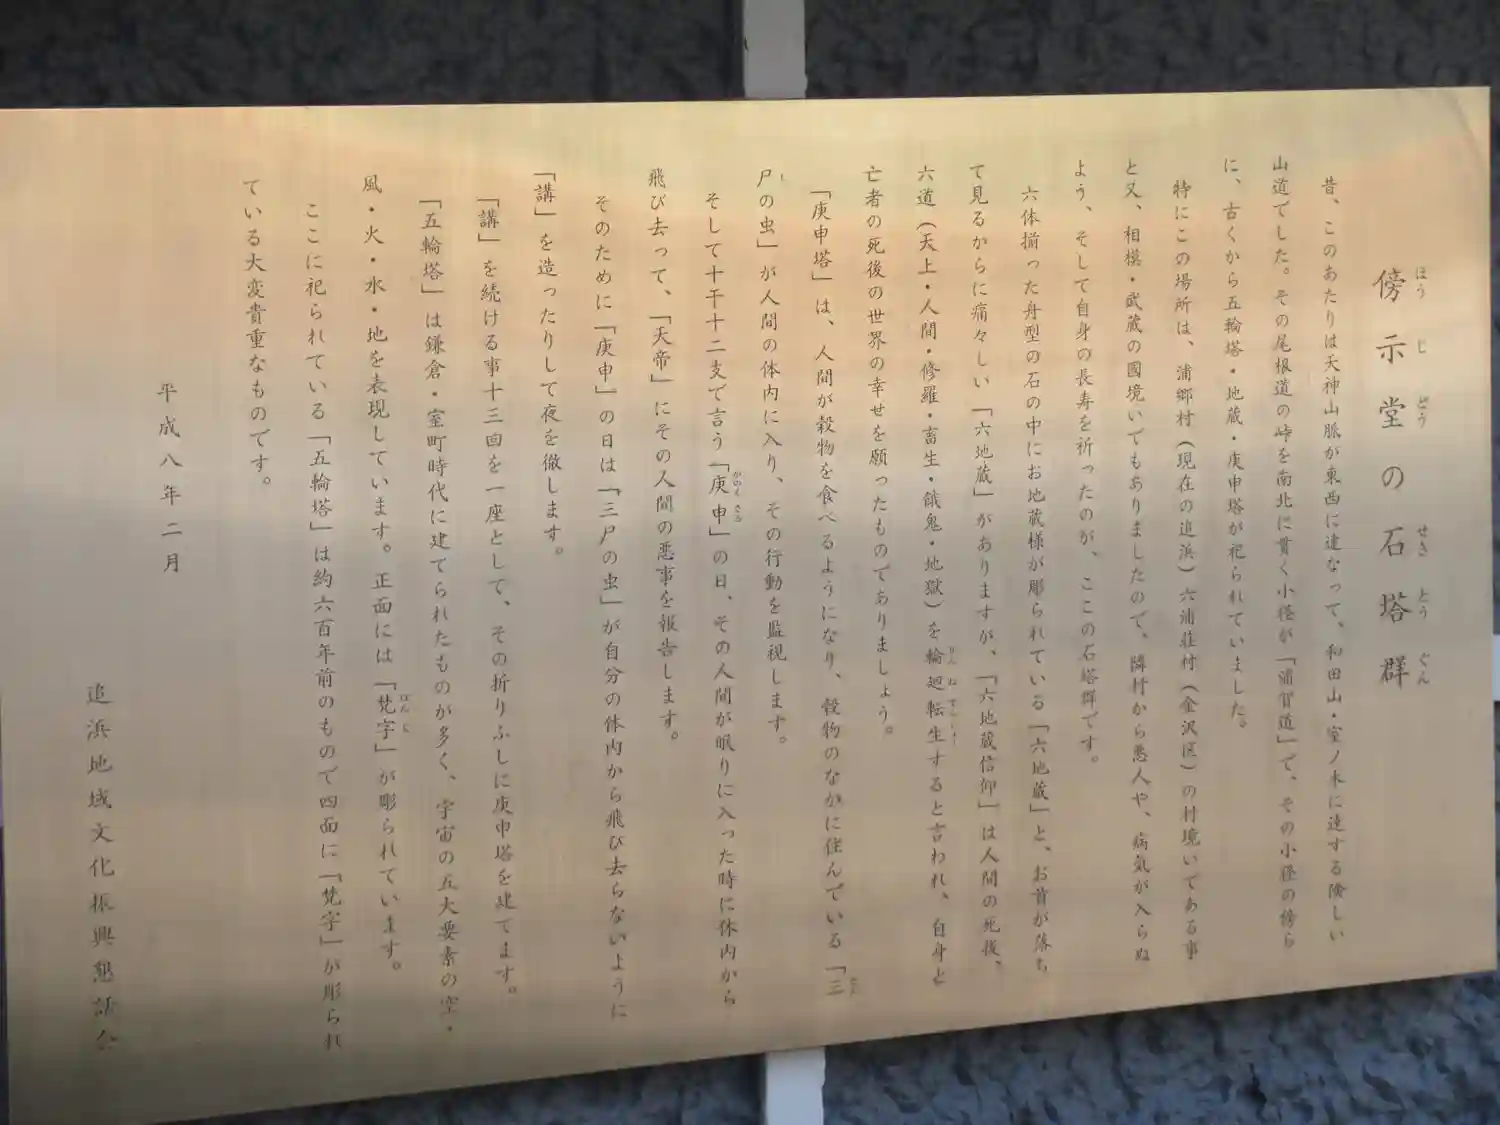 傍示堂の石塔群
ほうじどう せきとうぐん
昔、このあたりは天神山脈が東西に連なって、和田山・室ノ木に達する険しい
山道でした。その尾根道の峠を南北に貫く小径が「浦賀道」で、その小径の傍ら
に、古くから五輪塔・地蔵・庚申塔が祀られていました。
特にこの場所は、浦郷村（現在の追浜）六浦荘村（金沢区）の村境いである事
と又、相模・武蔵の國境いでもありましたので、隣村から悪人や、病気が入らぬ
よう、そして自身の長寿を祈ったのが、ここの石塔群です。
六体揃った舟型の石の中にお地蔵様が彫られている「六地蔵」と、お首が落ち
て見るからに痛々しい「六地蔵」がありますが、「六地蔵信仰」は人間の死後、
六道（天上・人間・修羅・畜生・餓鬼・地獄）を輪廻転生すると言われ、自身と
りんねてんしょう
亡者の死後の世界の幸せを願ったものでありましょう。
「庚申塔」は、人間が穀物を食べるようになり、穀物のなかに住んでいる「三
さん
尸の虫」が人間の体内に入り、その行動を監視します。
し
そして十干十二支で言う「庚申」の日、その人間が眠りに入った時に体内から
かのえさる
飛び去って、「天帝」にその人間の悪事を報告します。
そのために「庚申」の日は「三尸の虫」が自分の体内から飛び去らないように
「講」を造ったりして夜を徹します。
「講」を続ける事十三回を一座として、その折りふしに庚申塔を建てます。
「五輪塔」は鎌倉・室町時代に建てられたものが多く、宇宙の五大要素の空・
風・火・水・地を表現しています。正面には「梵字」が彫られています。
ぼんじ
ここに祀られている「五輪塔」は約六百年前のもので四面に「梵字」が彫られ
ている大変貴重なものです。
平成八年二月
追浜地域文化振興懇話会